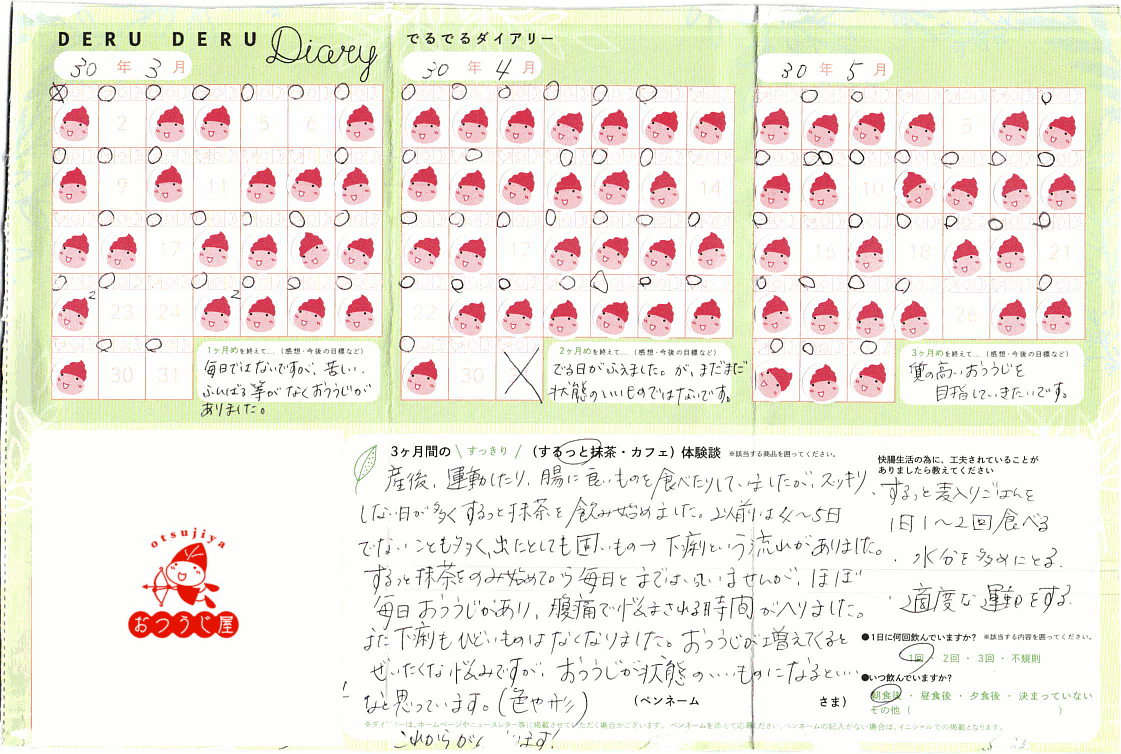 DERU DERU Diary でるでるダイアリー
30年3月
30年4月
30年5月
2 5 6
9 11 14 10
17 18 16 21
2 2
23 24 22 26
30 31 30
1ヶ月めを終えて…（感想・今後の目標など）
毎日ではないですが、苦しい、
ふんばる等がなくおつうじが
ありました。
2ヶ月めを終えて…（感想・今後の目標など）
でる日がふえました。が、まだまだ
状態のいいものではないです。
3ヶ月めを終えて…（感想・今後の目標など）
質の高いおつうじを
目指していきたいです。
3ヶ月間の\すっきり/（するっと抹茶・カフェ）体験談 ※該当する商品を囲ってください。
産後、運動したり、腸に良いものを食べたりしていましたが、スッキリ
しない日が多くするっと抹茶を飲み始めました。以前は4～5日
でないことも多く、出たとしても固いもの→下痢という流れがありました。
するっと抹茶をのみ始めてから毎日とまでは いませんが、ほぼ
毎日おつうじがあり、腹痛で悩まされる時間がへりました。
また下痢もひどいものはなくなりました。おつうじが増えてくると
ぜいたくな悩みですが、おつうじが状態のいいものになるといい
なと思っています。（色や形）
これからが ます!
（ペンネーム さま）
快腸生活の為に、工夫されていることが
ありましたら教えてください
・するっと麦入りごはんを
1日1～2回食べる
・水分を多めにとる。
・適度な運動をする。
●1日に何回飲んでいますか? ※該当する内容を囲ってください。
1回・2回・3回・不規則
●いつ飲んでいますか?
朝食後・昼食後・夕食後・決まっていない
その他（ ）
※ダイアリーは、ホームページやニュースレター等に掲載させていただく場合がございます。ペンネームを添えて応募ください。ペンネームの記入がない場合は、イニシャルでの掲載となります。
otsujiya
おつうじ屋